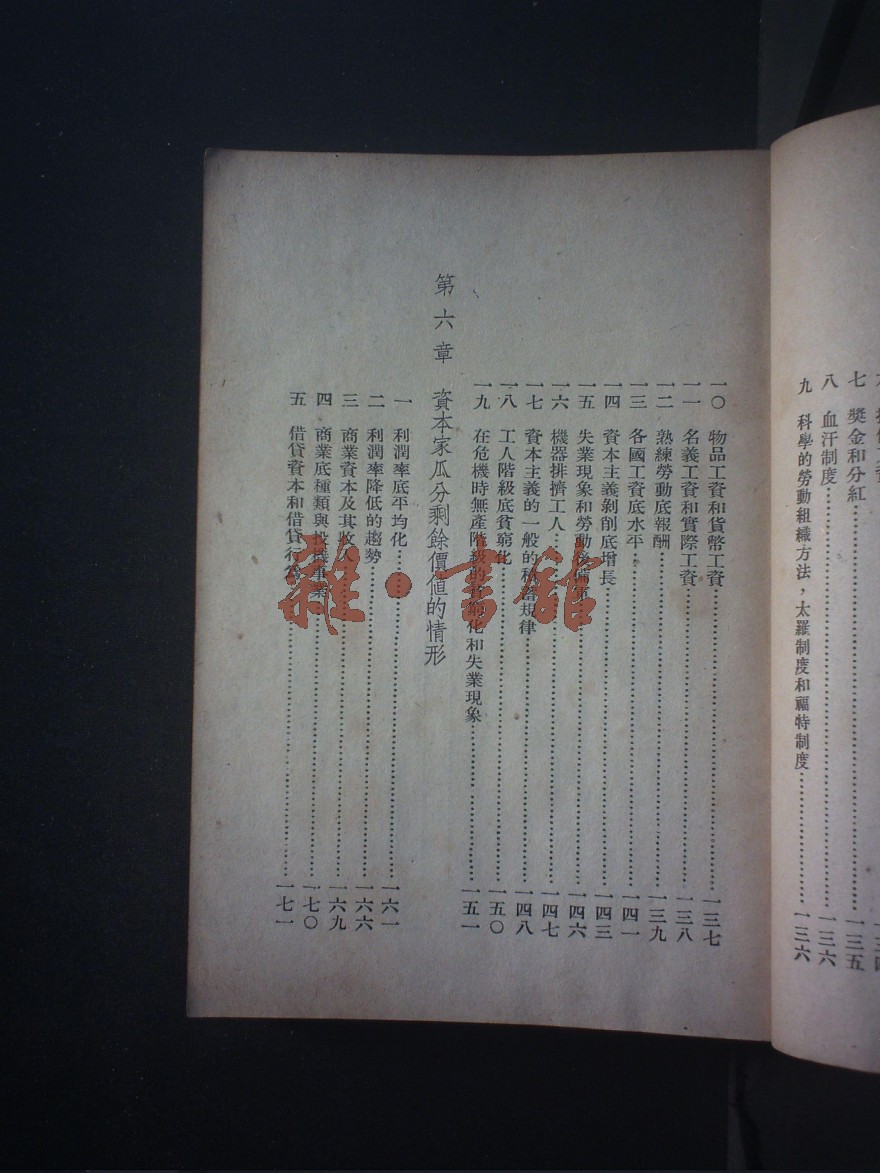 七 獎金和分紅……一三五
八 血汗制度……一三六
九 科學的勞動組織方法，太羅制度和福特制度……一三六
一〇 物品工資和貨幣工資……一三七
一一 名義工資和實際工資……一三八
一二 熟練勞動底報酬……一三九
一三 各國工資底水平……一四一
一四 資本主義剝削底增長……一四三
一五 失業現象和勞動後備軍……一四六
一六 機器排擠工人……一四七
一七 資本主義的一般的積蓄規律……一四八
一八 工人階級底貧窮化……一五〇
一九 在危機時無產階級的貧窮化和失業現象……一五一
第六章 資本家瓜分剩餘價值的情形
一 利潤率底平均化……一六一
二 利潤率降低的趨勢……一六六
三 商業資本及其收入……一六九
四 商業底種類與投機事業……一七〇
五 借貸資本和借貸行為……一七一
雜·書館